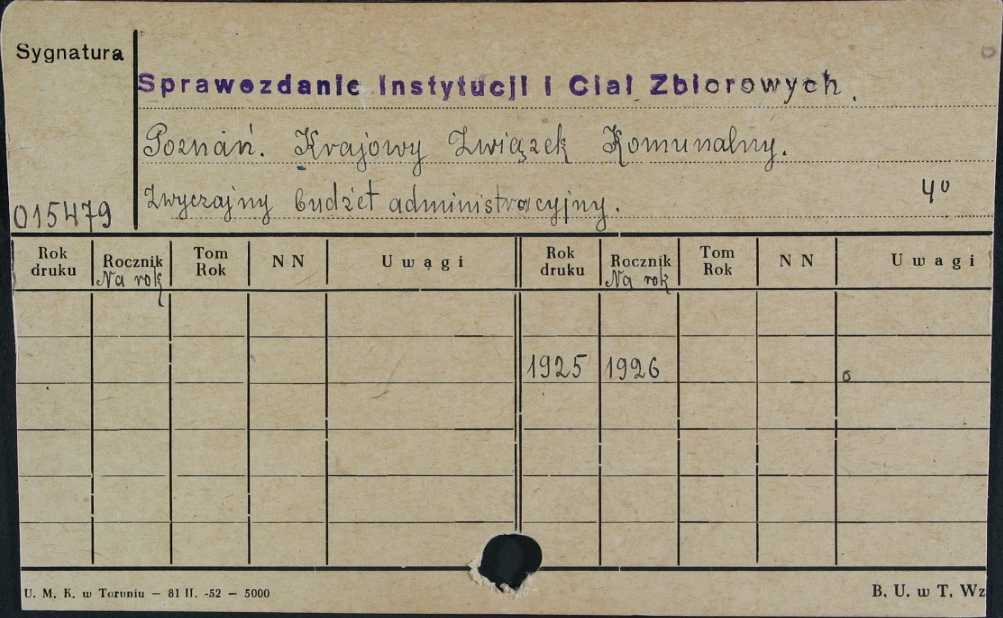 Sygnatura
Sprawozdanie Instytucji i Ciał Zbiorowych.
Poznań. Krajowy Związek Komunalny.
Zwyczajny budżet administracyjny. 4⁰
015479
Rok druku Rocznik Na rok Tom Rok N N Uwagi Rok druku Rocznik Na rok Tom Rok N N Uwagi
1925 1926 o
U. M. K. w Toruniu — 81 II. -52 — 5000 B. U. w T. Wz